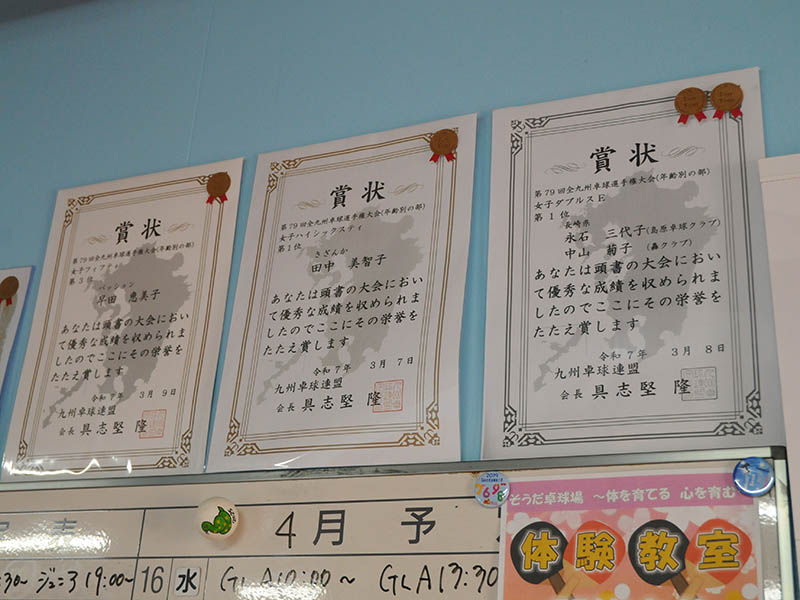 賞状
第79回全九州卓球選手権大会(年齢別の部)
女子フィフティ
第3位
パッション
早田 恵美子
あなたは頭書の大会におい
て優秀な成績を収められま
したのでここにその栄誉を
たたえ賞します
令和7年 3月 9日
九州卓球連盟
会長 具志堅 隆
賞状
第79回全九州卓球選手権大会(年齢別の部)
女子ハイシックスティ
第1位
さざんか
田中 美智子
あなたは頭書の大会におい
て優秀な成績を収められま
したのでここにその栄誉を
たたえ賞します
令和7年 3月 7日
九州卓球連盟
会長 具志堅 隆
賞状
第79回全九州卓球選手権大会(年齢別の部)
女子ダブルスE
第1位
長崎県
永石 三代子(島原卓球クラブ)
中山 菊子(轟クラブ)
あなたは頭書の大会におい
て優秀な成績を収められま
したのでここにその栄誉を
たたえ賞します
令和7年 3月 8日
九州卓球連盟
会長 具志堅 隆
4月 予
30~ ジュニア 19:00~
16 水 GLA10:00~ GLA13:30
そうだ卓球場 ~体を育てる 心を育む
体験教室